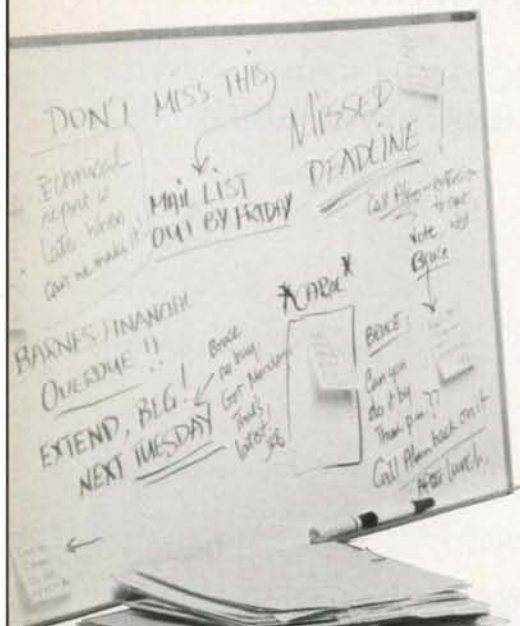 DON'T MISS THIS
Technical
report is
Later when
can we make it?
MAIL LIST
OUT BY FRIDAY
MISSED
DEADLINE
Call Alan
to see
Note
Bruce
BARNES FINANCIAL
OVERDUE !!
EXTEND, BEG!
NEXT TUESDAY
Bruce
no buy
Got
That's
latest
*CAROL*
BRUCE:
Can you
do it by
Thurs p.m. ??
Call Alan back on it
After lunch,